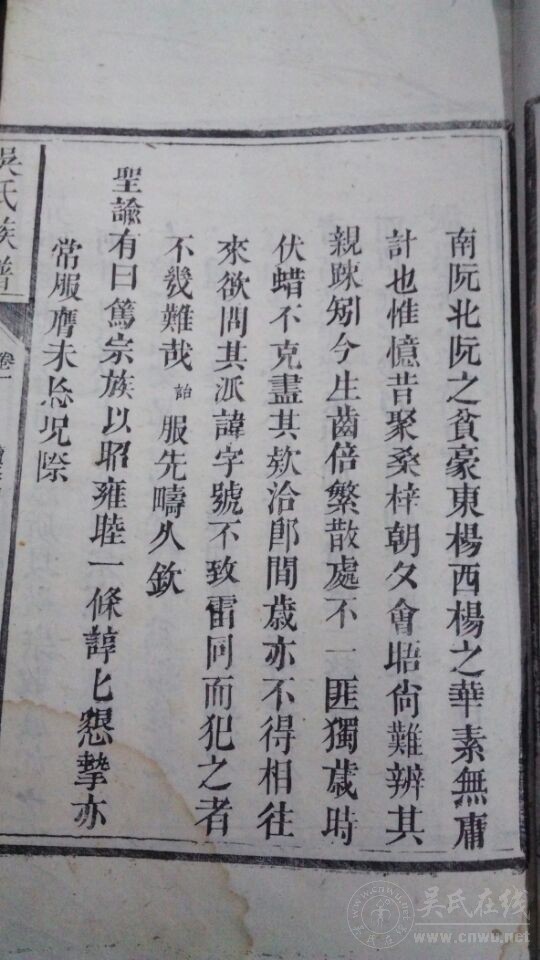 南阮北阮之貧豪東楊西楊之華素無庸
計也惟憶昔聚桑梓朝夕會晤尙難辨其
親踈矧今生齒倍繁散處不一匪獨歲時
伏蜡不克盡其欵洽卽間歲亦不得相往
來欲問其派諱字號不致雷同而犯之者
不幾難哉 詒 服先疇久欽
聖諭有曰篤宗族以昭雍睦一條諄匕懇摯亦
常服膺未忘況際
吳氏族譜
卷一
吴氏在线
www.cnwu.net